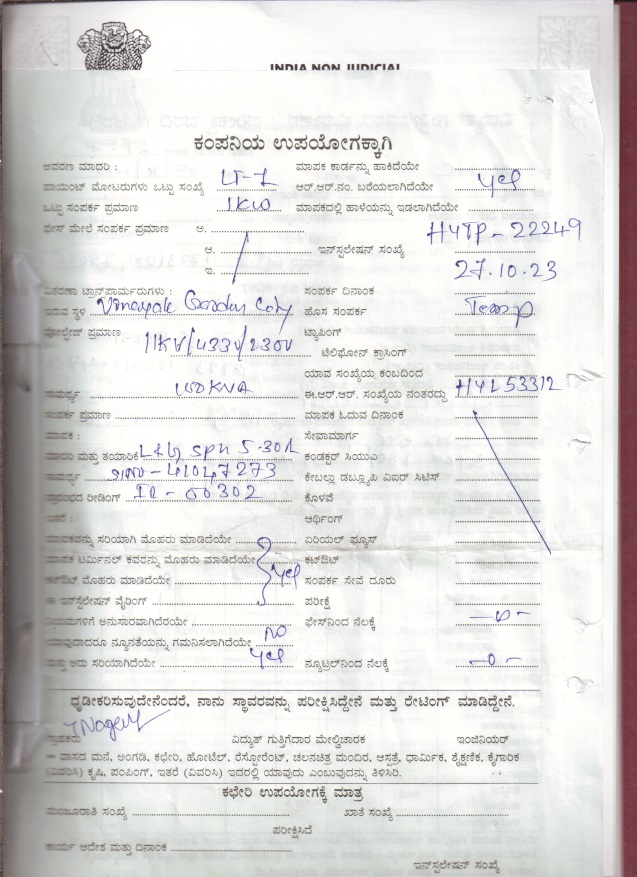 INDIA NON JUDICIAL
ಕಂಪನಿಯ ಉಪಯೋಗಕ್ಕಾಗಿ
ಆವರಣ ಮಾದರಿ : ಮಾಪಕ ಕಾರ್ಡನ್ನು ಹಾಕಿದೆಯೇ
ಪಾಯಿಂಟ್ ಮೋಟರುಗಳು ಒಟ್ಟು ಸಂಖ್ಯೆ LT-1 ಆರ್.ಆರ್.ನಂ. ಬರೆಯಲಾಗಿದೆಯೇ Yes
ಒಟ್ಟು ಸಂಪರ್ಕ ಪ್ರಮಾಣ 1KW ಮಾಪಕದಲ್ಲಿ ಹಾಳೆಯನ್ನು ಇಡಲಾಗಿದೆಯೇ
ಫೇಸ್ ಮೇಲೆ ಸಂಪರ್ಕ ಪ್ರಮಾಣ ಅ. H4TP-22249
ಆ. ಇನ್‌ಸ್ಟಲೇಷನ್ ಸಂಖ್ಯೆ
ಇ. 27.10.23
ವಿತರಣಾ ಟ್ರಾನ್ಸ್‌ಫಾರ್ಮರುಗಳು : ಸಂಪರ್ಕ ದಿನಾಂಕ
ಇರುವ ಸ್ಥಳ Vinayak Garden City ಹೊಸ ಸಂಪರ್ಕ Temp
ವೋಲ್ಟೇಜ್ ಪ್ರಮಾಣ 11KV/433V/230V ಟ್ಯಾಪಿಂಗ್
ಟೆಲಿಫೋನ್ ಕ್ರಾಸಿಂಗ್
ಯಾವ ಸಂಖ್ಯೆಯ ಕಂಬದಿಂದ
ಸಾಮರ್ಥ್ಯ KVA ಈ.ಆರ್.ಆರ್. ಸಂಖ್ಯೆಯ ನಂತರದ್ದು H4L53312
ಸಂಪರ್ಕ ಪ್ರಮಾಣ ಮಾಪಕ ಓದುವ ದಿನಾಂಕ
ಮಾಪಕ : ಸೇವಾಮಾರ್ಗ
ಮಾದರಿ ಮತ್ತು ತಯಾರಿಕೆ L&G 5-30A ಕಂಡಕ್ಟರ್ ಸಿಯುಎ
ಸಾಮರ್ಥ್ಯ 41047273 ಕೇಬಲ್ಲು ಡಬ್ಲ್ಯೂಪಿ ವಿಐಆರ್ ಸಿಟಿಸ್
ಪ್ರಾರಂಭದ ರೀಡಿಂಗ್ IR-00302 ಕೊಳವೆ
ಇತರೆ : ಆರ್ಥಿಂಗ್
ಮಾಪಕವನ್ನು ಸರಿಯಾಗಿ ಮೊಹರು ಮಾಡಿದೆಯೇ ಏರಿಯಲ್ ಫ್ಯೂಸ್
ಮಾಪಕ ಟರ್ಮಿನಲ್ ಕವರನ್ನು ಮೊಹರು ಮಾಡಿದೆಯೇ ಕಟ್‌ಔಟ್
ಕಟ್‌ಔಟ್ ಮೊಹರು ಮಾಡಿದೆಯೇ Yes ಸಂಪರ್ಕ ಸೇವೆ ದೂರು
ಈ ಇನ್‌ಸ್ಟಲೇಷನ್ ವೈರಿಂಗ್ ಪರೀಕ್ಷೆ
ನಿಯಮಗಳಿಗೆ ಅನುಸಾರವಾಗಿದೆಯೇ ಫೇಸ್‌ನಿಂದ ನೆಲಕ್ಕೆ -0-
ಯಾವುದಾದರೂ ನ್ಯೂನತೆಯನ್ನು ಗಮನಿಸಲಾಗಿದೆಯೇ NO
ಮತ್ತು ಅದು ಸರಿಯಾಗಿದೆಯೇ Yes ನ್ಯೂಟ್ರಲ್‌ನಿಂದ ನೆಲಕ್ಕೆ -0-
ಧೃಡೀಕರಿಸುವುದೇನೆಂದರೆ, ನಾನು ಸ್ಥಾವರವನ್ನು ಪರೀಕ್ಷಿಸಿದ್ದೇನೆ ಮತ್ತು ರೇಟಿಂಗ್ ಮಾಡಿದ್ದೇನೆ.
ಗ್ರಾಹಕರು ವಿದ್ಯುತ್ ಗುತ್ತಿಗೆದಾರ ಮೇಲ್ವಿಚಾರಕ ಇಂಜಿನಿಯರ್
ವಾಸದ ಮನೆ, ಅಂಗಡಿ, ಕಛೇರಿ, ಹೋಟೆಲ್, ರೆಸ್ಟೋರೆಂಟ್, ಚಲನಚಿತ್ರ ಮಂದಿರ, ಆಸ್ಪತ್ರೆ, ಧಾರ್ಮಿಕ, ಶೈಕ್ಷಣಿಕ, ಕೈಗಾರಿಕ
(ವಿವರಿಸಿ) ಕೃಷಿ, ಪಂಪಿಂಗ್, ಇತರೆ (ವಿವರಿಸಿ) ಇದರಲ್ಲಿ ಯಾವುದು ಎಂಬುವುದನ್ನು ತಿಳಿಸಿರಿ.
ಕಛೇರಿ ಉಪಯೋಗಕ್ಕೆ ಮಾತ್ರ
ಮಂಜೂರಾತಿ ಸಂಖ್ಯೆ ಖಾತೆ ಸಂಖ್ಯೆ
ಪರೀಕ್ಷಿಸಿದೆ
ಕಾರ್ಯ ಆದೇಶ ಮತ್ತು ದಿನಾಂಕ
ಇನ್‌ಸ್ಟಲೇಷನ್ ಸಂಖ್ಯೆ